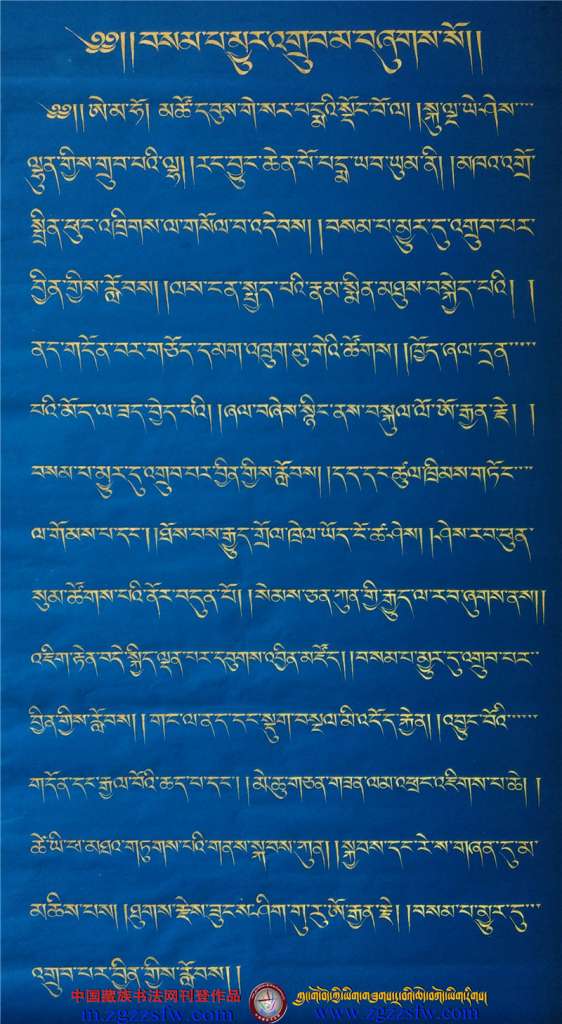 ༄༅།། བསམ་པ་མྱུར་འགྲུབ་མ་བཞུགས་སོ།།
༄༅།། ཨེ་མ་ཧོ། མཚོ་དབུས་གེ་སར་པདྨའི་སྡོང་པོ་ལ། །སྐུ་ལྔ་ཡེ་ཤེས་
ལྷུན་གྱིས་གྲུབ་པའི་ལྷ། །རང་བྱུང་ཆེན་པོ་པདྨ་ཡབ་ཡུམ་ནི། །མཁའ་འགྲོ་
སྤྲིན་ཕུང་འཁྲིགས་ལ་གསོལ་བ་འདེབས། །བསམ་པ་མྱུར་དུ་འགྲུབ་པར་
བྱིན་གྱིས་རློབས། །ལས་ངན་སྤྱད་པའི་རྣམ་སྨིན་མཐུས་བསྐྱེད་པའི། །
ནད་གདོན་བར་གཅོད་དམག་འཁྲུག་མུ་གེའི་ཚོགས། །ཁྱོད་ཞལ་དྲན་
པའི་མོད་ལ་ཟད་བྱེད་པའི། །ཞལ་བཞེས་སྙིང་ནས་བསྐུལ་ལོ་ཨོ་རྒྱན་རྗེ། །
བསམ་པ་མྱུར་དུ་འགྲུབ་པར་བྱིན་གྱིས་རློབས། །དད་དང་ཚུལ་ཁྲིམས་གཏོང་
ལ་གོམས་པ་དང་། །ཐོས་པས་རྒྱུད་གྲོལ་ཁྲེལ་ཡོད་ངོ་ཚ་ཤེས། །ཤེས་རབ་ཕུན་
སུམ་ཚོགས་པའི་ནོར་བདུན་པོ། །སེམས་ཅན་ཀུན་གྱི་རྒྱུད་ལ་རབ་ཞུགས་ནས།།
འཇིག་རྟེན་བདེ་སྐྱིད་ལྡན་པར་དབུགས་འབྱིན་མཛོད། །བསམ་པ་མྱུར་དུ་འགྲུབ་པར་
བྱིན་གྱིས་རློབས། །གང་ལ་ནད་དང་སྡུག་བསྔལ་མི་འདོད་རྐྱེན། །འབྱུང་པོའི་
གདོན་དང་རྒྱལ་པོའི་ཆད་པ་དང་། །མེ་ཆུ་གཅན་གཟན་ལམ་འཕྲང་འཇིགས་པ་ཆེ། །
ཚེ་ཡི་ཕ་མཐར་གཏུགས་པའི་གནས་སྐབས་ཀུན། །སྐྱབས་དང་རེ་ས་གཞན་དུ་མ་
མཆིས་པས། །ཐུགས་རྗེས་ཟུངས་ཤིག་གུ་རུ་ཨོ་རྒྱན་རྗེ། །བསམ་པ་མྱུར་དུ་
འགྲུབ་པར་བྱིན་གྱིས་རློབས། །
中国藏族书法网刊登作品
m.zgzzsfw.com www.zgzzsfw.com